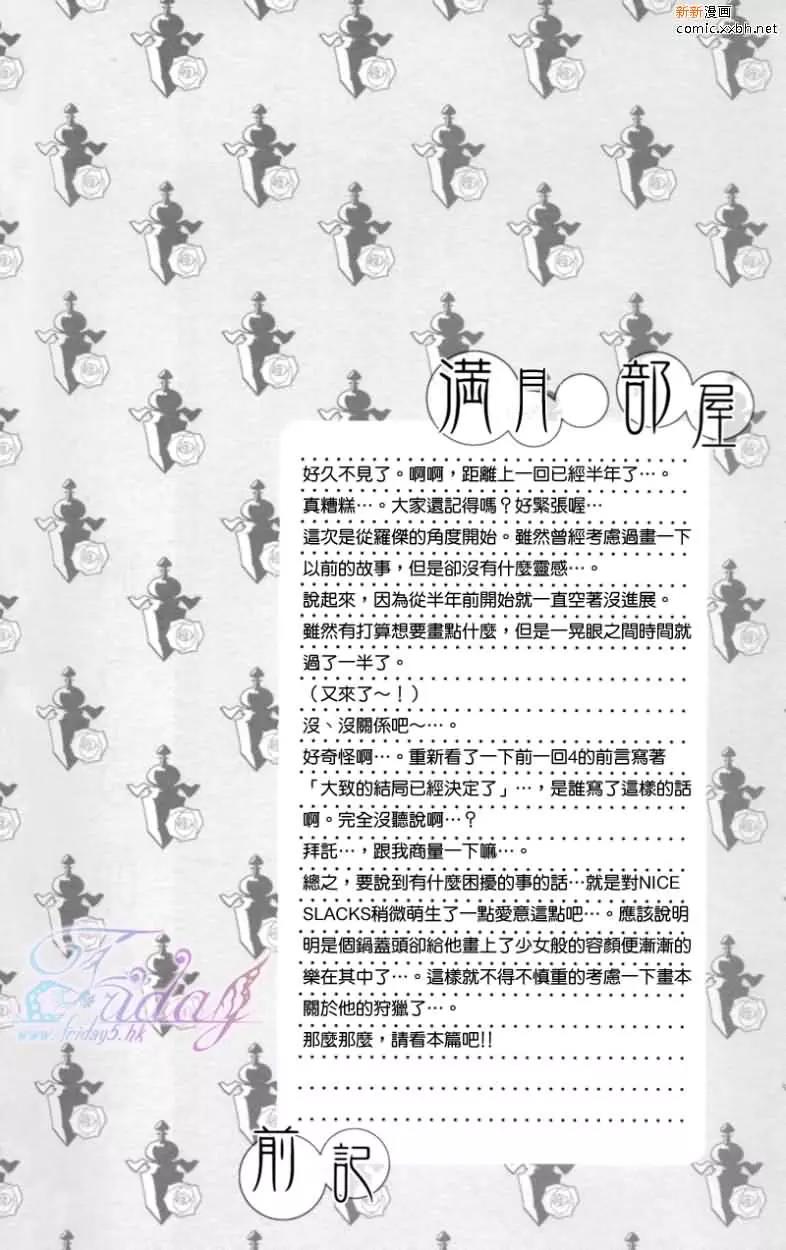 新新漫画
comic.xxbh.net
満月 部屋
好久不見了。啊啊，距離上一回已經半年了…。
真糟糕…。大家還記得嗎？好緊張喔…
這次是從羅傑的角度開始。雖然曾經考慮過畫一下
以前的故事，但是卻沒有什麼靈感…。
說起來，因為從半年前開始就一直空著沒進展。
雖然有打算想要畫點什麼，但是一晃眼之間時間就
過了一半了。
（又來了～！）
沒、沒關係吧～…。
好奇怪啊…。重新看了一下前一回4的前言寫著
「大致的結局已經決定了」…，是誰寫了這樣的話
啊。完全沒聽說啊…？
拜託…，跟我商量一下嘛…。
總之，要說到有什麼困擾的事的話…就是對NICE
SLACKS稍微萌生了一點愛意這點吧…。應該說明
明是個鍋蓋頭卻給他畫上了少女般的容顏便漸漸的
樂在其中了…。這樣就不得不慎重的考慮一下畫本
關於他的狩獵了…。
那麼那麼，請看本篇吧!!
Friday
www.friday5.hk
前記